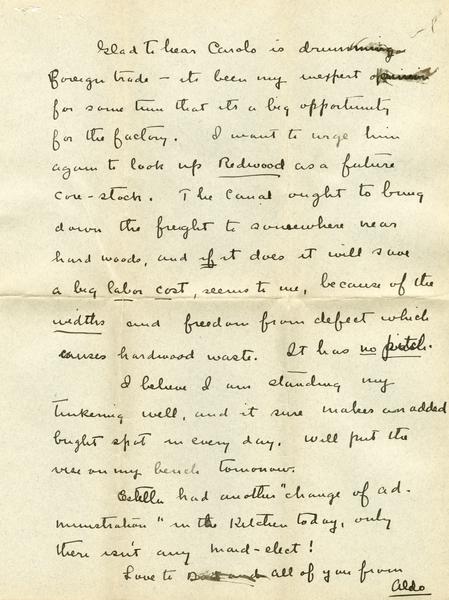 Glad to hear Carolo is drumming
foreign trade — its been my inexpert opinion
for some time that its a big opportunity
for the factory. I want to urge him
again to look up Redwood as a future
core-stock. The Canal ought to bring
down the freight to somewhere near
hard woods, and if it does it will save
a big labor cost, seems to me, because of the
widths and freedom from defect which
causes hardwood waste. It has no pitch.
I believe I am standing my
tinkering well, and it sure makes an added
bright spot in every day. Will put the
vise on my bench tomorrow.
Estella had another "change of ad-
ministration" in the Kitchen today, only
there isn't any maid-elect!
Love to all of you from
Aldo